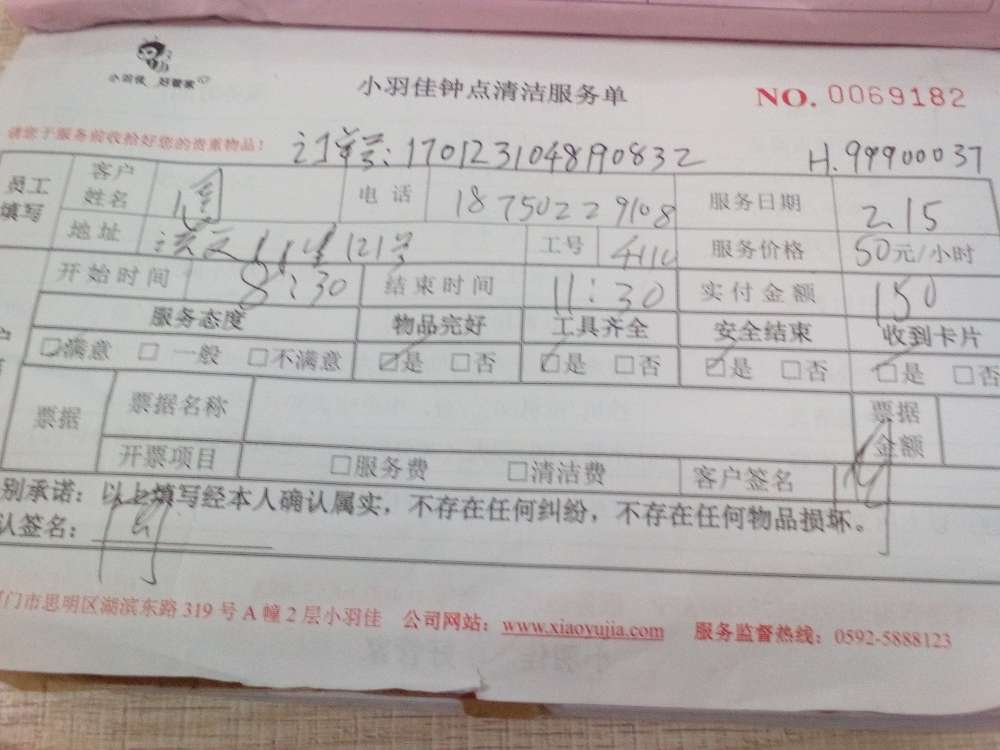 小羽佳 好管家
小羽佳钟点清洁服务单
NO. 0069182
请您于服务前收拾好您的贵重物品!
订单号: 1701231048190832 H.99900037
员工填写 客户姓名 电话 18750229108 服务日期 2.15
地址 121号 工号 服务价格 50元/小时
开始时间 8:30 结束时间 11:30 实付金额 150
服务态度 物品完好 工具齐全 安全结束 收到卡片
☑满意 □一般 □不满意 ☑是 □否 ☑是 □否 ☑是 □否 ☑是 □否
票据 票据名称 票据金额
开票项目 □服务费 □清洁费 客户签名
别承诺：以上填写经本人确认属实，不存在任何纠纷，不存在任何物品损坏。
认签名：
门市思明区湖滨东路 319 号 A 幢 2 层小羽佳 公司网站：www.xiaoyujia.com 服务监督热线：0592-5888123